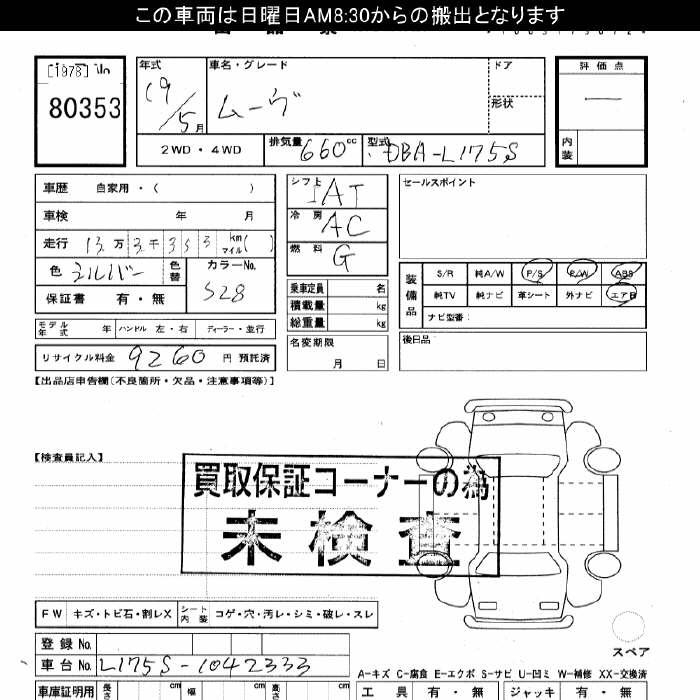 この車両は日曜日AM8:30からの搬出となります
[1978]
80353
年式 車名・グレード ドア
19/5月 ムーヴ 形状
2WD・4WD 排気量 660cc 型式 DBA-L175S
評価点
―
内装
車歴 自家用・( )
車検 年 月
走行 13万3千353 km マイル( )
色 シルバー 色替 カラーNo. S28
保証書 有・無
モデル年式 年 ハンドル 左・右 ディーラー・並行
リサイクル料金 9260 円 預託済
シフト IAT
冷房 AC
燃料 G
乗車定員 名
積載量 kg
総重量 kg
名変期限
月 日
セールスポイント
装備品 S/R 純A/W P/S P/W ABS
純TV 純ナビ 革シート 外ナビ エアB
ナビ型番:
後日品
【出品店申告欄(不良箇所・欠品・注意事項等)】
【検査員記入】
買取保証コーナーの為
未検査
FW キズ・トビ石・割レX シート内装 コゲ・穴・汚レ・シミ・破レ・スレ
スペア
登録No.
車台No. L175S-1042333
A-キズ C-腐食 E-エクボ S-サビ U-凹ミ W-補修 XX-交換済
車庫証明用 長さ cm 幅 cm 高さ cm
工具 有・無 ジャッキ 有・無